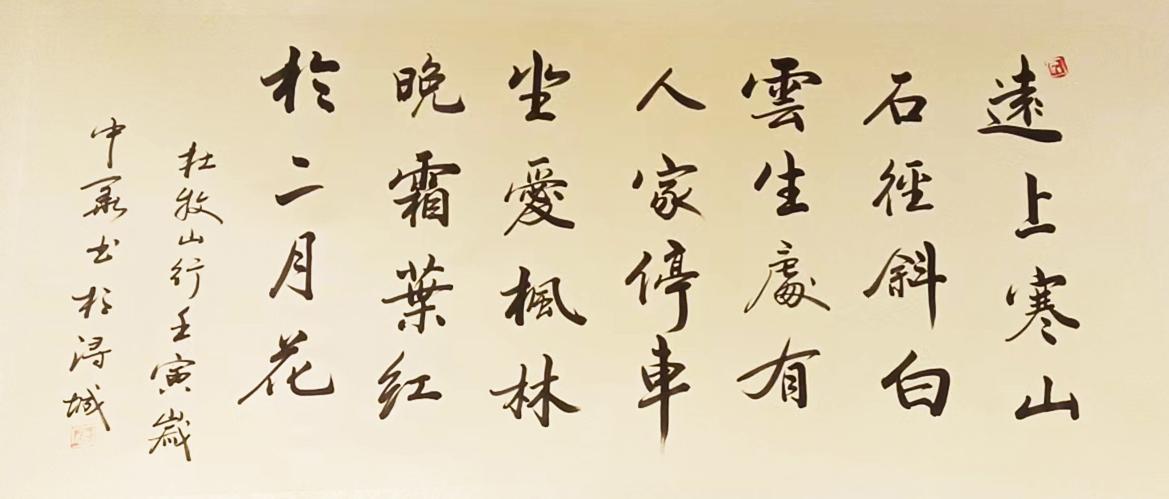 遠上寒山
石徑斜白
雲生處有
人家停車
坐愛楓林
晚霜葉红
於二月花
杜牧山行壬寅歲
中夏书於潯城